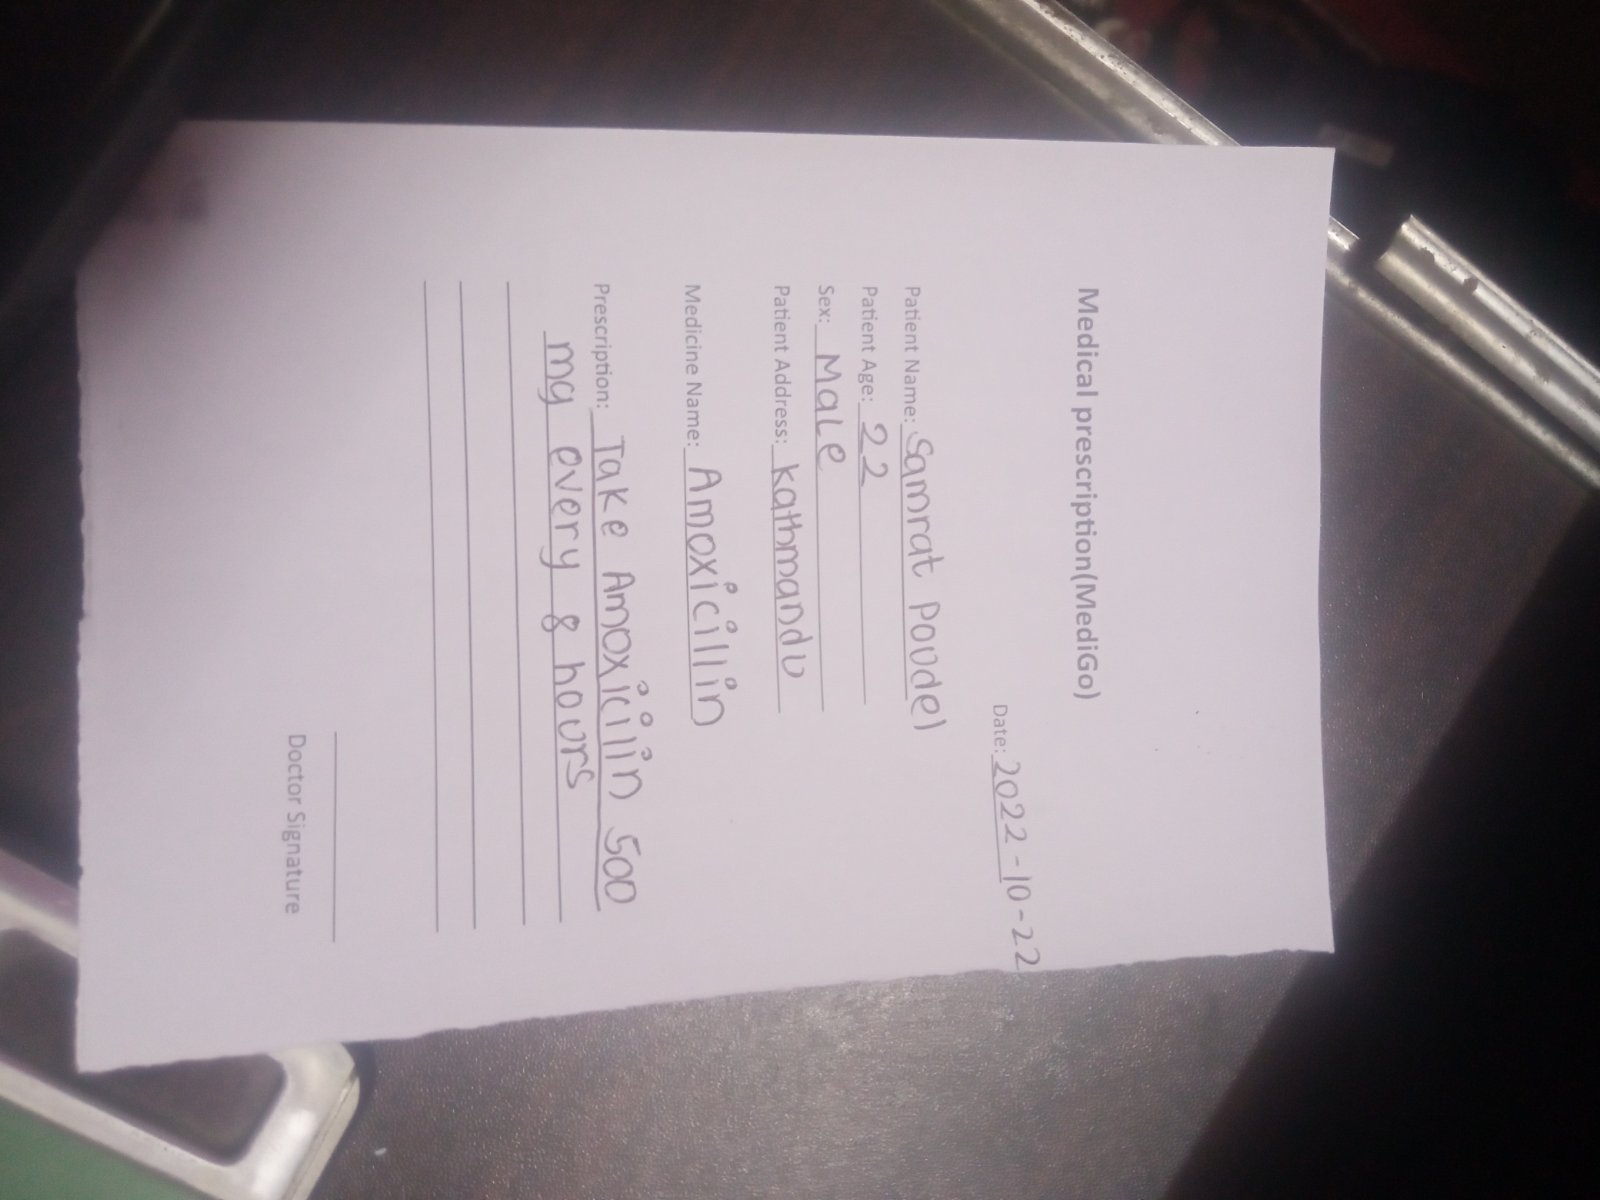 Medical prescription(MediGo)
Date: 2022-10-22
Patient Name: Samrat Poudel
Patient Age: 22
Sex: Male
Patient Address: Kathmandu
Medicine Name: Amoxicillin
Prescription: Take Amoxicilin 500
mg every 8 hours
Doctor Signature